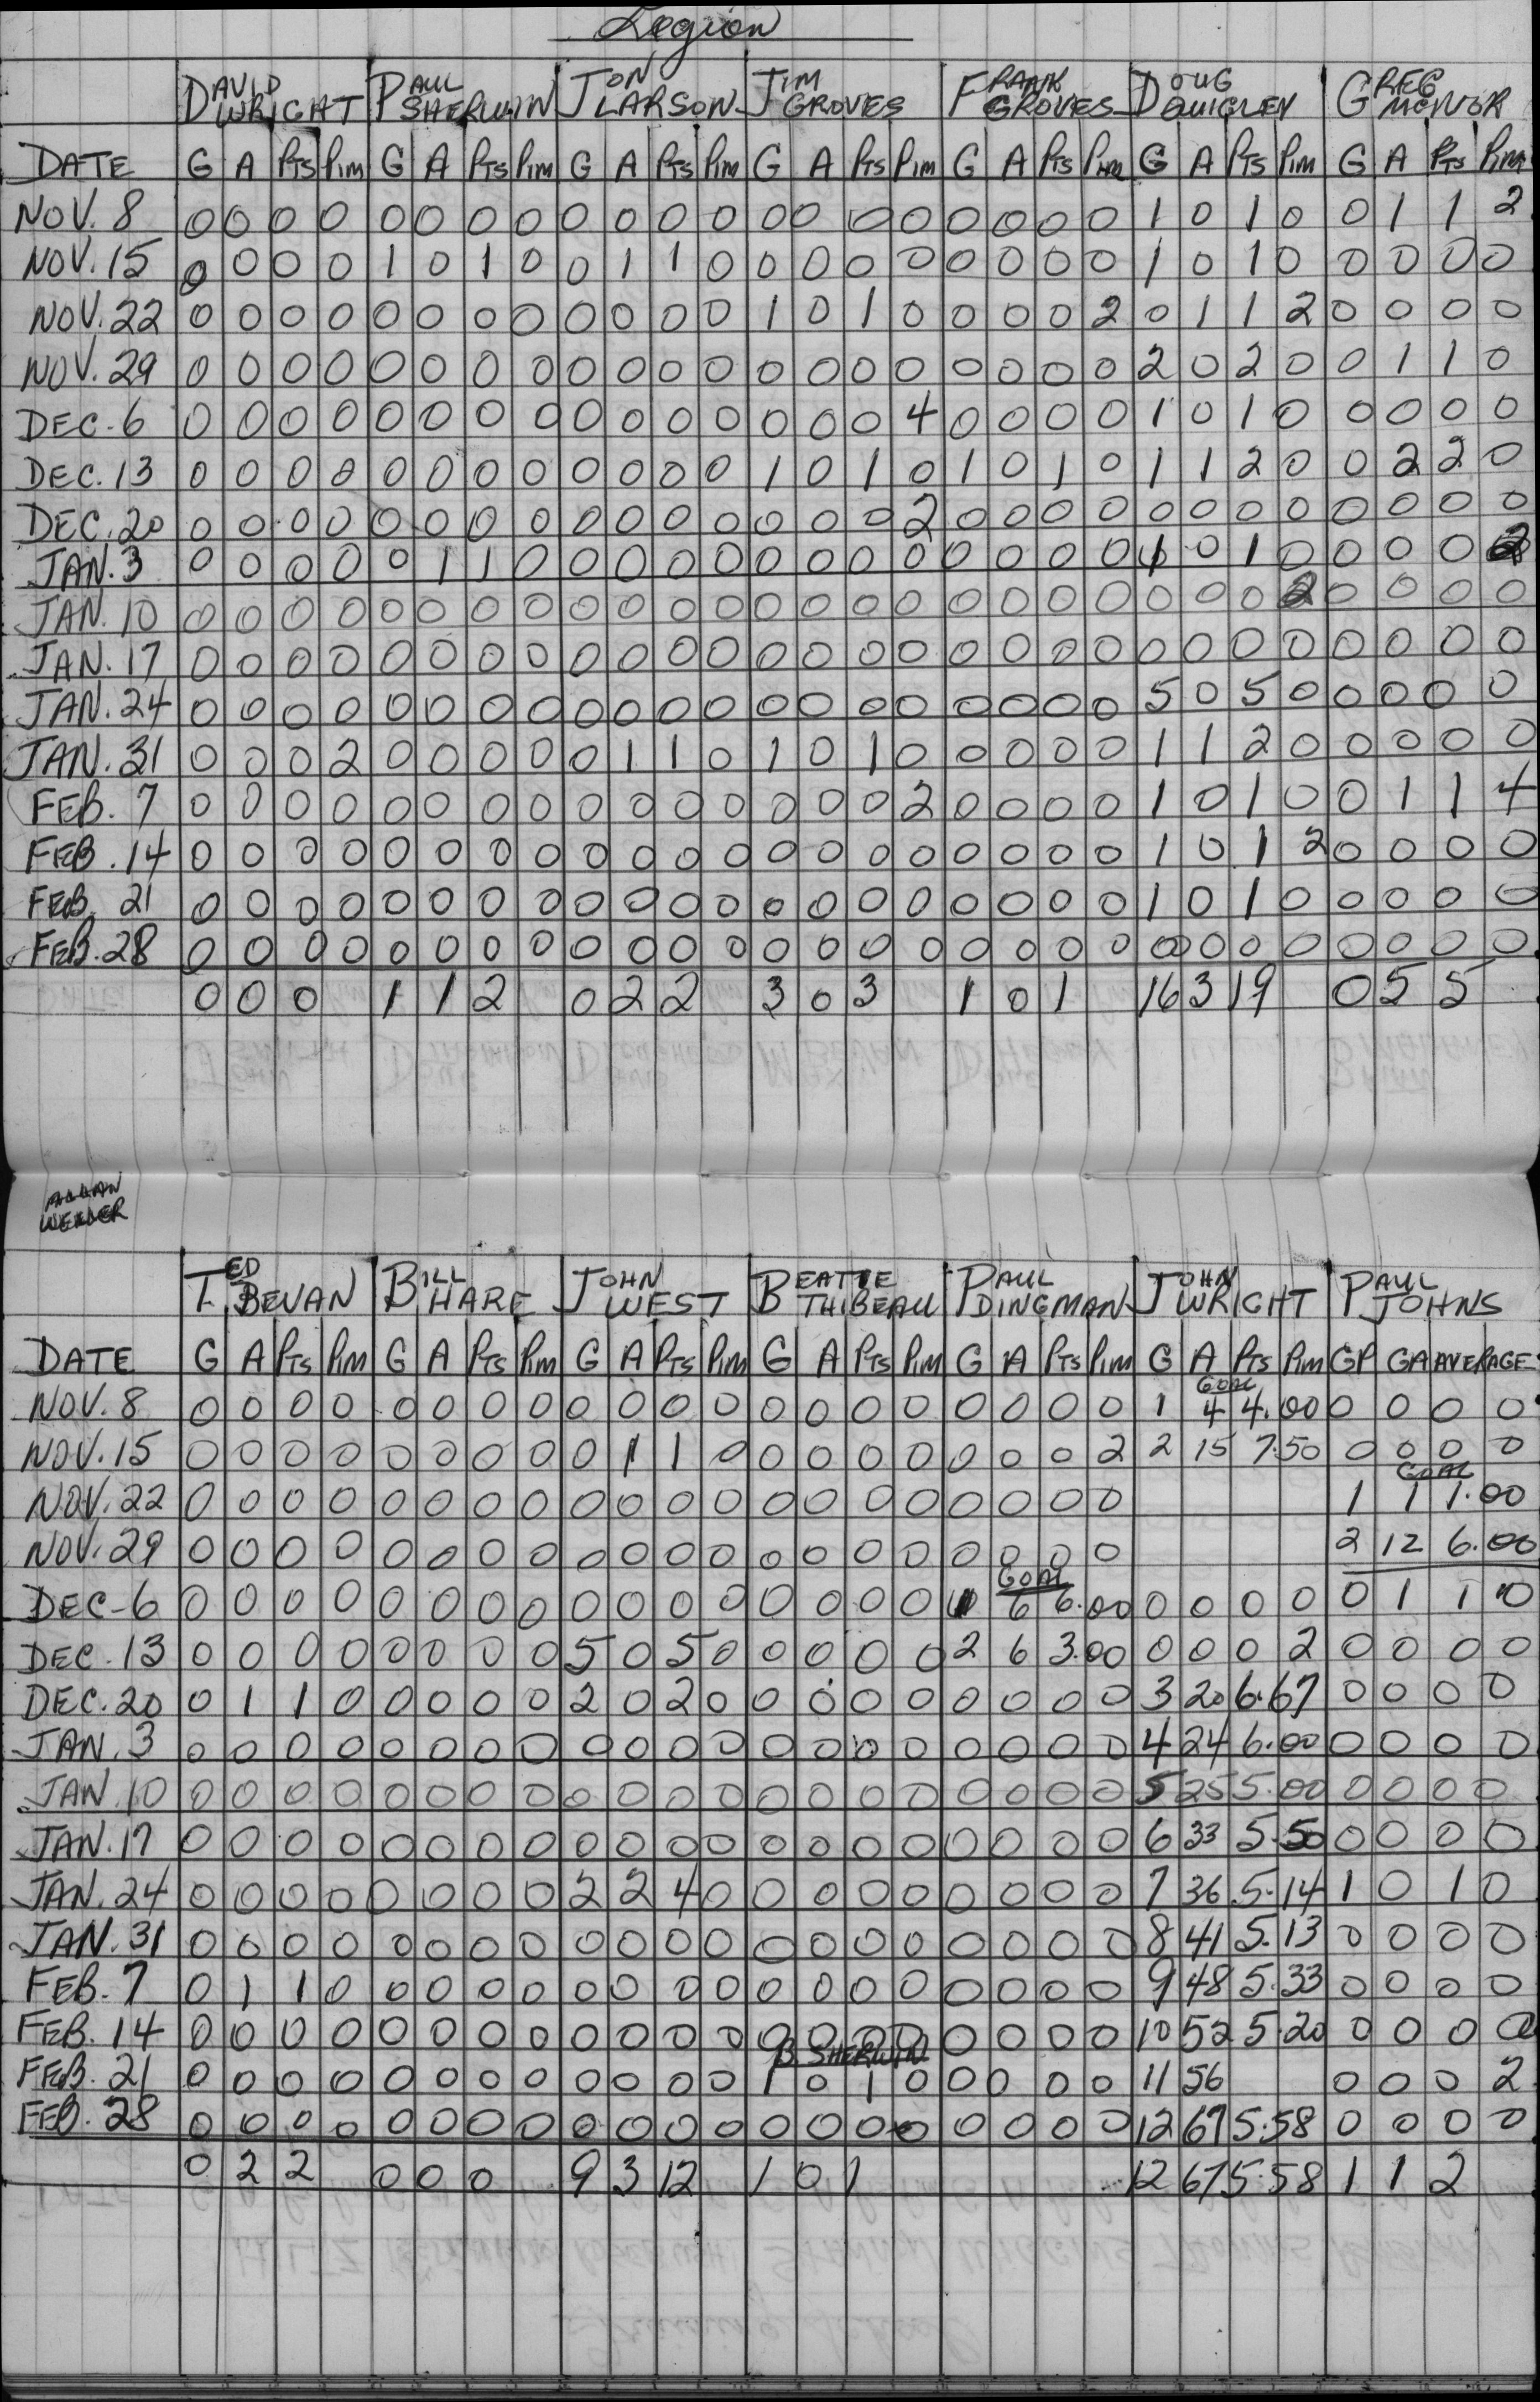 Legion
DAVID WRIGHT PAUL SHERWIN JON LARSON JIM GROVES FRANK GROVES DOUG QUIGLEY GREG MCIVOR
DATE G A PTS PIM G A PTS PIM G A PTS PIM G A PTS PIM G A PTS PIM G A PTS PIM G A PTS PIM
NOV. 8 0 0 0 0 0 0 0 0 0 0 0 0 0 0 0 0 0 0 0 0 1 0 1 0 0 1 1 2
NOV. 15 0 0 0 0 1 0 1 0 0 1 1 0 0 0 0 0 0 0 0 0 1 0 1 0 0 0 0 0
NOV. 22 0 0 0 0 0 0 0 0 0 0 0 0 1 0 1 0 0 0 0 2 0 1 1 2 0 0 0 0
NOV. 29 0 0 0 0 0 0 0 0 0 0 0 0 0 0 0 0 0 0 0 0 2 0 2 0 0 1 1 0
DEC. 6 0 0 0 0 0 0 0 0 0 0 0 0 0 0 0 4 0 0 0 0 1 0 1 0 0 0 0 0
DEC. 13 0 0 0 0 0 0 0 0 0 0 0 0 1 0 1 0 1 0 1 0 1 1 2 0 0 2 2 0
DEC. 20 0 0 0 0 0 0 0 0 0 0 0 0 0 0 0 2 0 0 0 0 0 0 0 0 0 0 0 0
JAN. 3 0 0 0 0 0 1 1 0 0 0 0 0 0 0 0 0 0 0 0 0 1 0 1 0 0 0 0 2
JAN. 10 0 0 0 0 0 0 0 0 0 0 0 0 0 0 0 0 0 0 0 0 0 0 0 2 0 0 0 0
JAN. 17 0 0 0 0 0 0 0 0 0 0 0 0 0 0 0 0 0 0 0 0 0 0 0 0 0 0 0 0
JAN. 24 0 0 0 0 0 0 0 0 0 0 0 0 0 0 0 0 0 0 0 0 5 0 5 0 0 0 0 0
JAN. 31 0 0 0 2 0 0 0 0 0 1 1 0 1 0 1 0 0 0 0 0 1 1 2 0 0 0 0 0
FEB. 7 0 0 0 0 0 0 0 0 0 0 0 0 0 0 0 2 0 0 0 0 1 0 1 0 0 1 1 4
FEB. 14 0 0 0 0 0 0 0 0 0 0 0 0 0 0 0 0 0 0 0 0 1 0 1 2 0 0 0 0
FEB. 21 0 0 0 0 0 0 0 0 0 0 0 0 0 0 0 0 0 0 0 0 1 0 1 0 0 0 0 0
FEB. 28 0 0 0 0 0 0 0 0 0 0 0 0 0 0 0 0 0 0 0 0 0 0 0 0 0 0 0 0
0 0 0 1 1 2 0 2 2 3 0 3 1 0 1 16 3 19 0 5 5
ALLAN
WELLER
TED BEVAN BILL HARE JOHN WEST BEATTIE THIBEAU PAUL DINGMAN JOHN WRIGHT PAUL JOHNS
DATE G A PTS PIM G A PTS PIM G A PTS PIM G A PTS PIM G A PTS PIM G A PTS PIM GP GA AVERAGE
GOAL
NOV. 8 0 0 0 0 0 0 0 0 0 0 0 0 0 0 0 0 0 0 0 0 1 4 4.00 0 0 0 0
NOV. 15 0 0 0 0 0 0 0 0 0 1 1 0 0 0 0 0 0 0 0 2 2 15 7.50 0 0 0 0
GOAL
NOV. 22 0 0 0 0 0 0 0 0 0 0 0 0 0 0 0 0 0 0 0 0 1 1 1.00
NOV. 29 0 0 0 0 0 0 0 0 0 0 0 0 0 0 0 0 0 0 0 0 2 12 6.00
GOAL
DEC-6 0 0 0 0 0 0 0 0 0 0 0 0 0 0 0 0 1 6 6.00 0 0 0 0 0 1 1 0
DEC. 13 0 0 0 0 0 0 0 0 5 0 5 0 0 0 0 0 2 6 3.00 0 0 0 2 0 0 0 0
DEC. 20 0 1 1 0 0 0 0 0 2 0 2 0 0 0 0 0 0 0 0 0 3 20 6.67 0 0 0 0
JAN. 3 0 0 0 0 0 0 0 0 0 0 0 0 0 0 0 0 0 0 0 0 4 24 6.00 0 0 0 0
JAN. 10 0 0 0 0 0 0 0 0 0 0 0 0 0 0 0 0 0 0 0 0 5 25 5.00 0 0 0 0
JAN. 17 0 0 0 0 0 0 0 0 0 0 0 0 0 0 0 0 0 0 0 0 6 33 5.50 0 0 0 0
JAN. 24 0 0 0 0 0 0 0 0 2 2 4 0 0 0 0 0 0 0 0 0 7 36 5.14 1 0 1 0
JAN. 31 0 0 0 0 0 0 0 0 0 0 0 0 0 0 0 0 0 0 0 0 8 41 5.13 0 0 0 0
FEB. 7 0 1 1 0 0 0 0 0 0 0 0 0 0 0 0 0 0 0 0 0 9 48 5.33 0 0 0 0
FEB. 14 0 0 0 0 0 0 0 0 0 0 0 0 0 0 0 0 0 0 0 0 10 52 5.20 0 0 0 0
B. SHERWIN
FEB. 21 0 0 0 0 0 0 0 0 0 0 0 0 1 0 1 0 0 0 0 0 11 56 0 0 0 2
FEB. 28 0 0 0 0 0 0 0 0 0 0 0 0 0 0 0 0 0 0 0 0 12 67 5.58 0 0 0 0
0 2 2 0 0 0 9 3 12 1 0 1 12 67 5.58 1 1 2